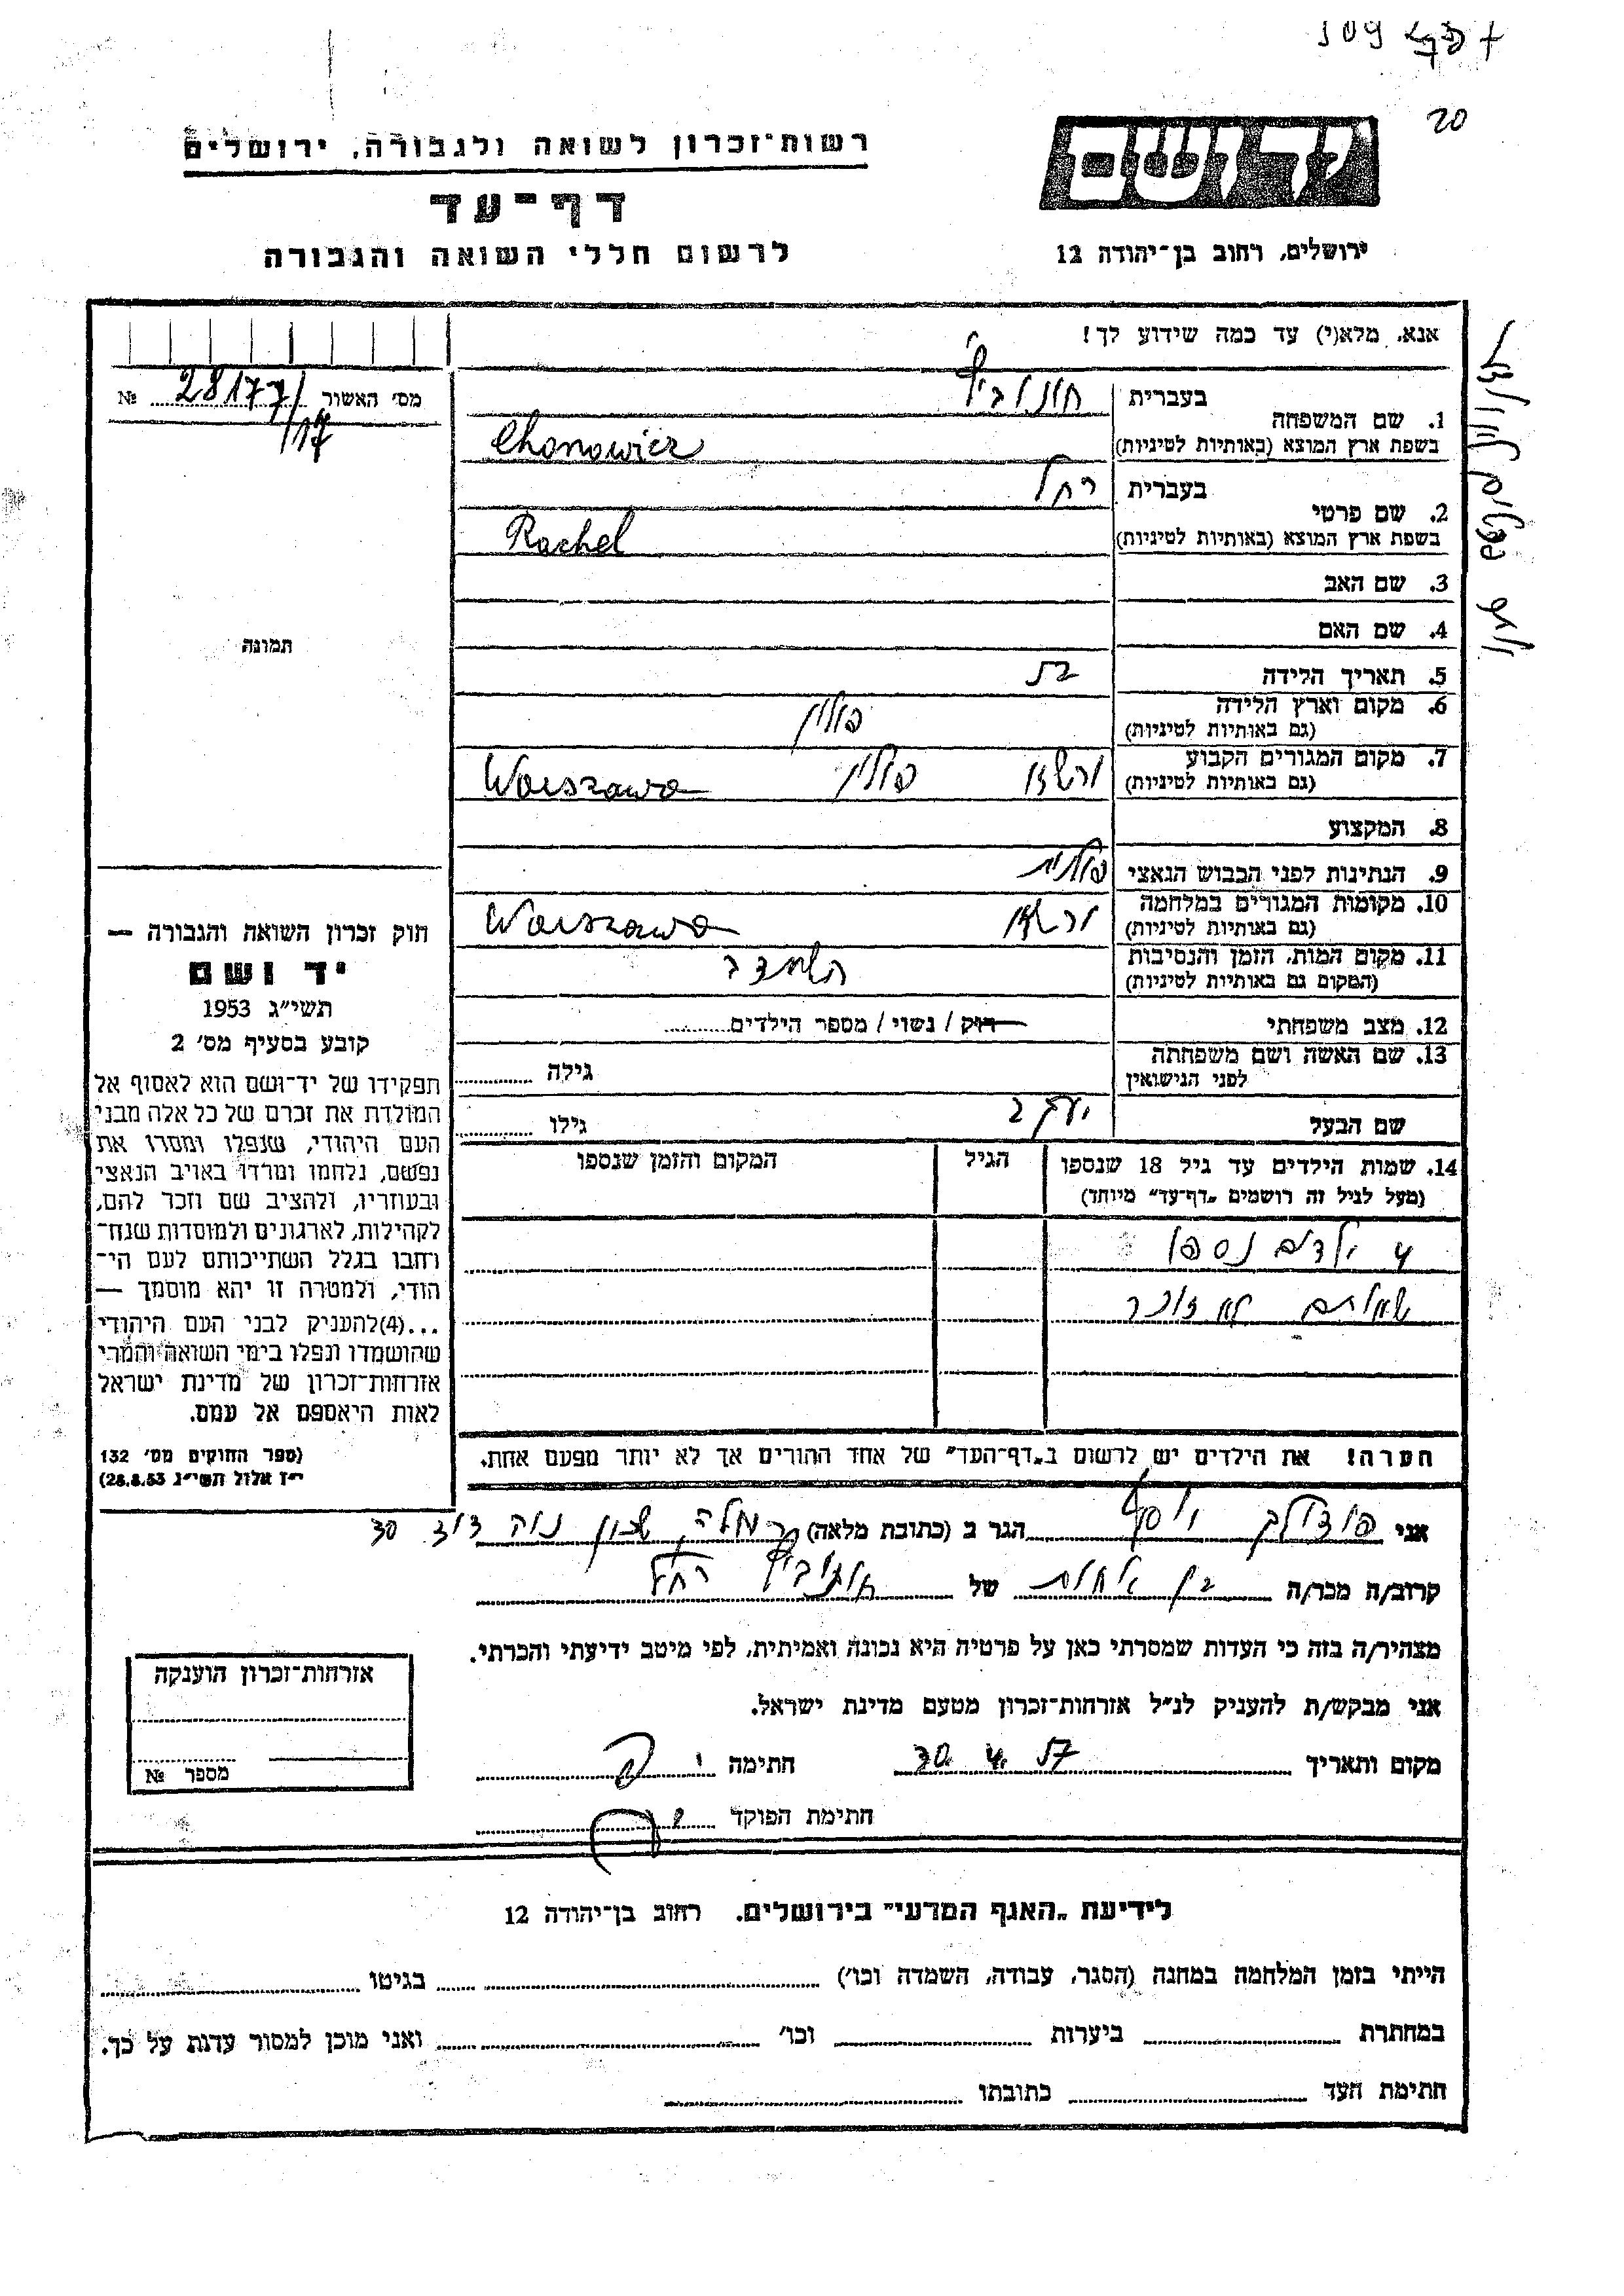 20
יד ושם
ירושלים, רחוב בן־יהודה 12
רשות־זכרון לשואה ולגבורה, ירושלים
דף־עד
לרשום חללי השואה והגבורה
אנא, מלא(י) עד כמה שידוע לך!
מס' האשור № 28177/
/17
1. שם המשפחה בעברית חונוביץ
בשפת ארץ המוצא (באותיות לטיניות) Chonowicz
2. שם פרטי בעברית רחל
בשפת ארץ המוצא (באותיות לטיניות) Rachel
3. שם האב
4. שם האם
5. תאריך הלידה
6. מקום וארץ הלידה פולין
(גם באותיות לטיניות)
7. מקום המגורים הקבוע ורשה פולין Warszawa
(גם באותיות לטיניות)
8. המקצוע
9. הנתינות לפני הכבוש הנאצי פולנית
10. מקומות המגורים במלחמה ורשה Warszawa
(גם באותיות לטיניות)
11. מקום המות, הזמן והנסיבות
(המקום גם באותיות לטיניות)
12. מצב משפחתי רווק / נשוי / מספר הילדים
13. שם האשה ושם משפחתה
לפני הנישואין גילה
שם הבעל יעקב גילו
14. שמות הילדים עד גיל 18 שנספו הגיל המקום והזמן שנספו
(מעל לגיל זה רושמים „דף־עד" מיוחד)
4 ילדים נספו
שמותם לא זוכר
הערה! את הילדים יש לרשום ב„דף־העד" של אחד ההורים אך לא יותר מפעם אחת.
תמונה
חוק זכרון השואה והגבורה —
יד ושם
תשי"ג 1953
קובע בסעיף מס' 2
תפקידו של יד־ושם הוא לאסוף אל
המולדת את זכרם של כל אלה מבני
העם היהודי, שנפלו ומסרו את
נפשם, נלחמו ומרדו באויב הנאצי
ובעוזריו, ולהציב שם וזכר להם,
לקהילות, לארגונים ולמוסדות שנח־
רחבו בגלל השתייכותם לעם הי־
הודי, ולמטרה זו יהא מוסמך —
...(4)להעניק לבני העם היהודי
שהושמדו ונפלו בימי השואה והמרי
אזרחות־זכרון של מדינת ישראל
לאות היאספם אל עמם.
(ספר החוקים מס' 132
י"ז אלול תשי"ג 28.8.53)
אני יוסף הגר ב (כתובת מלאה) רמלה, שכון נוה דוד 30
קרוב/ה מכר/ה בן אחות של חונוביץ רחל
מצהיר/ה בזה כי העדות שמסרתי כאן על פרטיה היא נכונה ואמיתית, לפי מיטב ידיעתי והכרתי.
אני מבקש/ת להעניק לנ"ל אזרחות־זכרון מטעם מדינת ישראל.
מקום ותאריך 30.4.57 חתימה
חתימת הפוקד
אזרחות־זכרון הוענקה
מספר №
לידיעת „האגף המדעי" בירושלים, רחוב בן־יהודה 12
הייתי בזמן המלחמה במחנה (הסגר, עבודה, השמדה וכו') בגיטו
במחתרת ביערות וכו' ואני מוכן למסור עדות על כך.
חתימת העד כתובתו